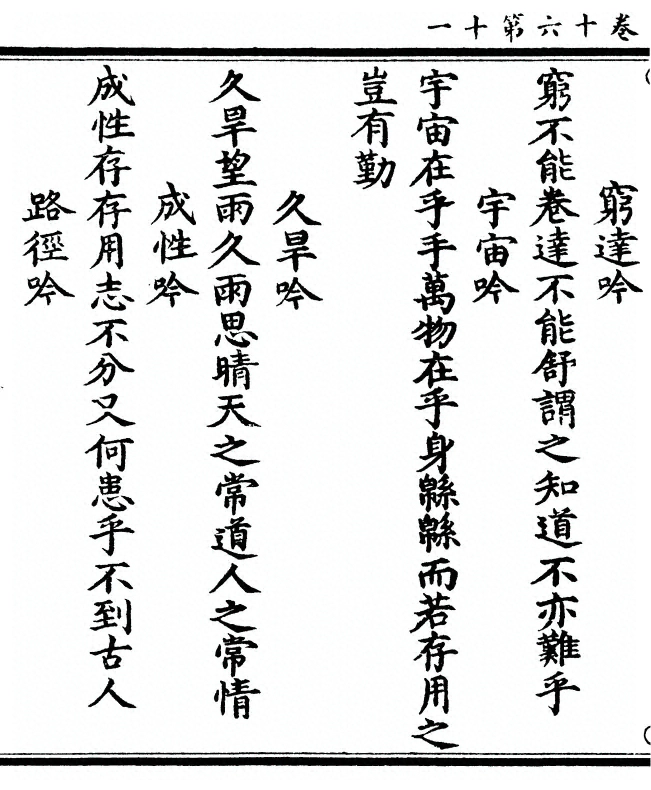 卷十六第十一
窮達吟
窮不能卷達不能舒謂之知道不亦難乎
宇宙吟
宇宙在乎手萬物在乎身緜緜而若存用之
豈有勤
久旱吟
久旱望雨久雨思晴天之常道人之常情
成性吟
成性存存用志不分又何患乎不到古人
路徑吟